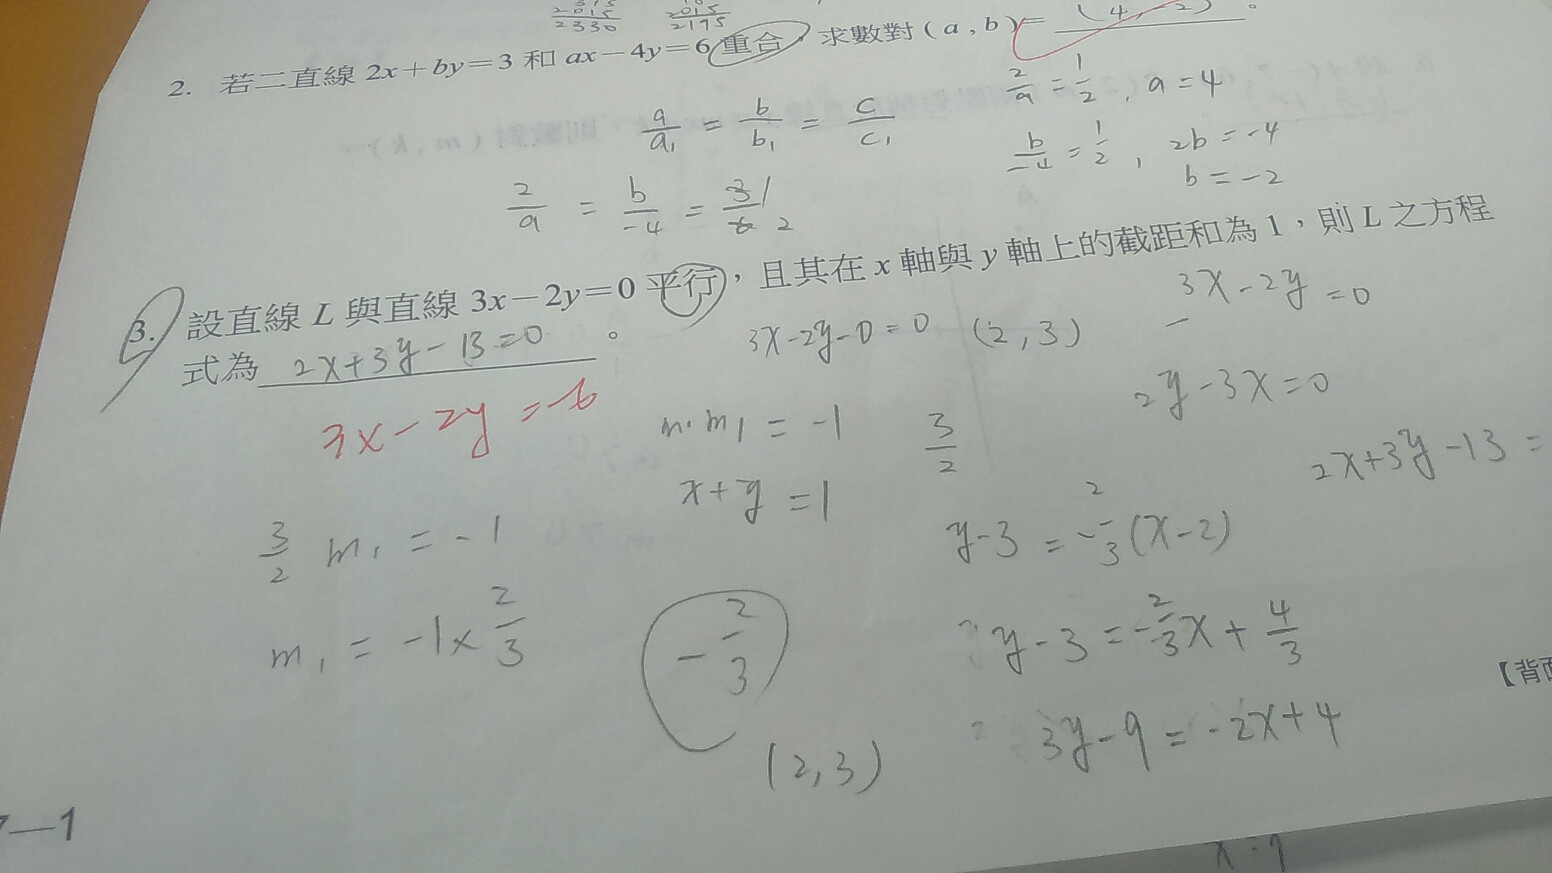 2330 2195
(4, -2)
2. 若二直線 2x+by=3 和 ax-4y=6 重合,求數對(a,b)= 。
a/a₁ = b/b₁ = c/c₁
2/a = 1/2 , a=4
b/-4 = 1/2 , 2b=-4
b=-2
2/a = b/-4 = 3/6 1/2
3. 設直線 L 與直線 3x-2y=0 平行,且其在 x 軸與 y 軸上的截距和為 1,則 L 之方程
式為 2x+3y-13=0 。
3x-2y=-6
3x-2y-0=0 (2,3)
3x-2y=0
2y-3x=0
m·m₁=-1
3/2
x+y=1
2x+3y-13=
3/2 m₁=-1
y-3=-2/3(x-2)
m₁=-1×2/3
-2/3
y-3=-2/3x+4/3
(2,3)
3y-9=-2x+4
【背面
7—1